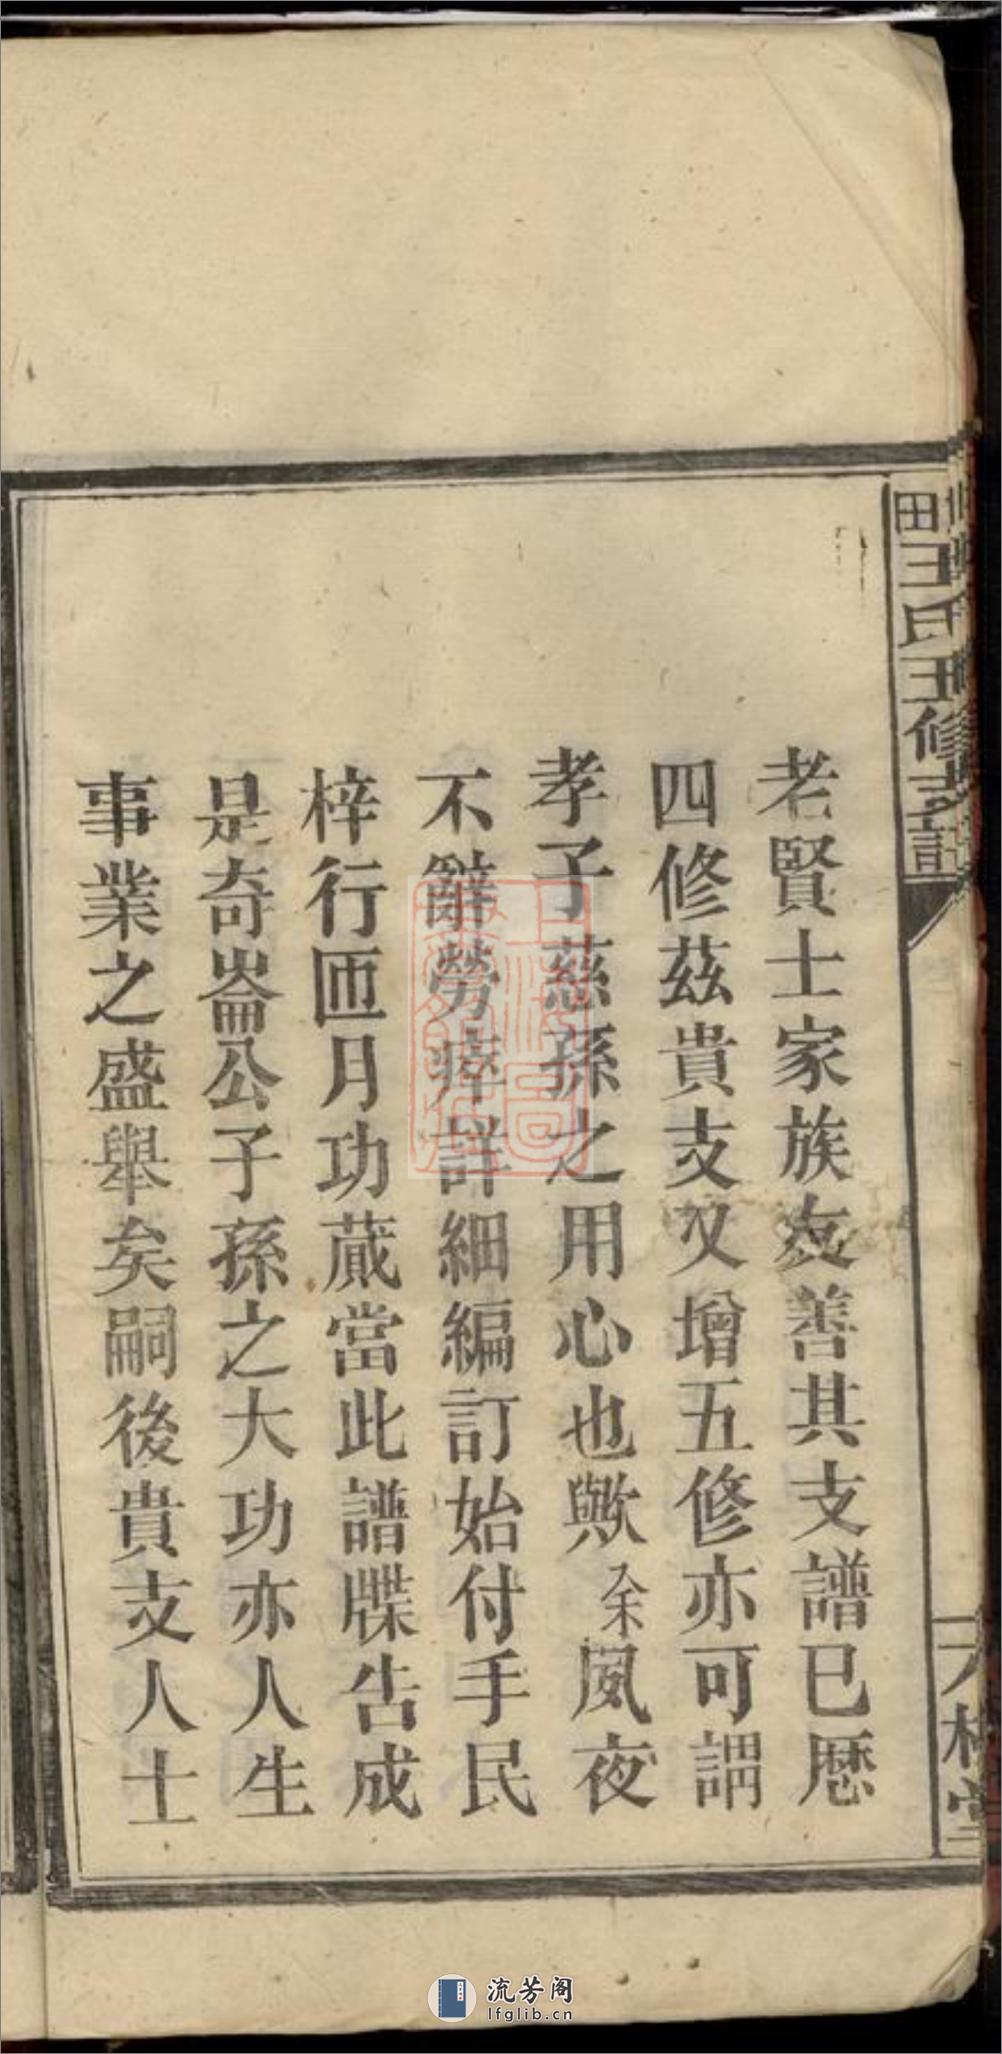 田王氏五修支譜
老賢士家族友善其支譜已歷
四修茲貴支又增五修亦可謂
孝子慈孫之用心也歟余夙夜
不辭勞瘁詳細編訂始付手民
梓行匝月功蕆當此譜牒告成
是奇崙公子孫之大功亦人生
事業之盛舉矣嗣後貴支人士
流芳阁
lfglib.cn